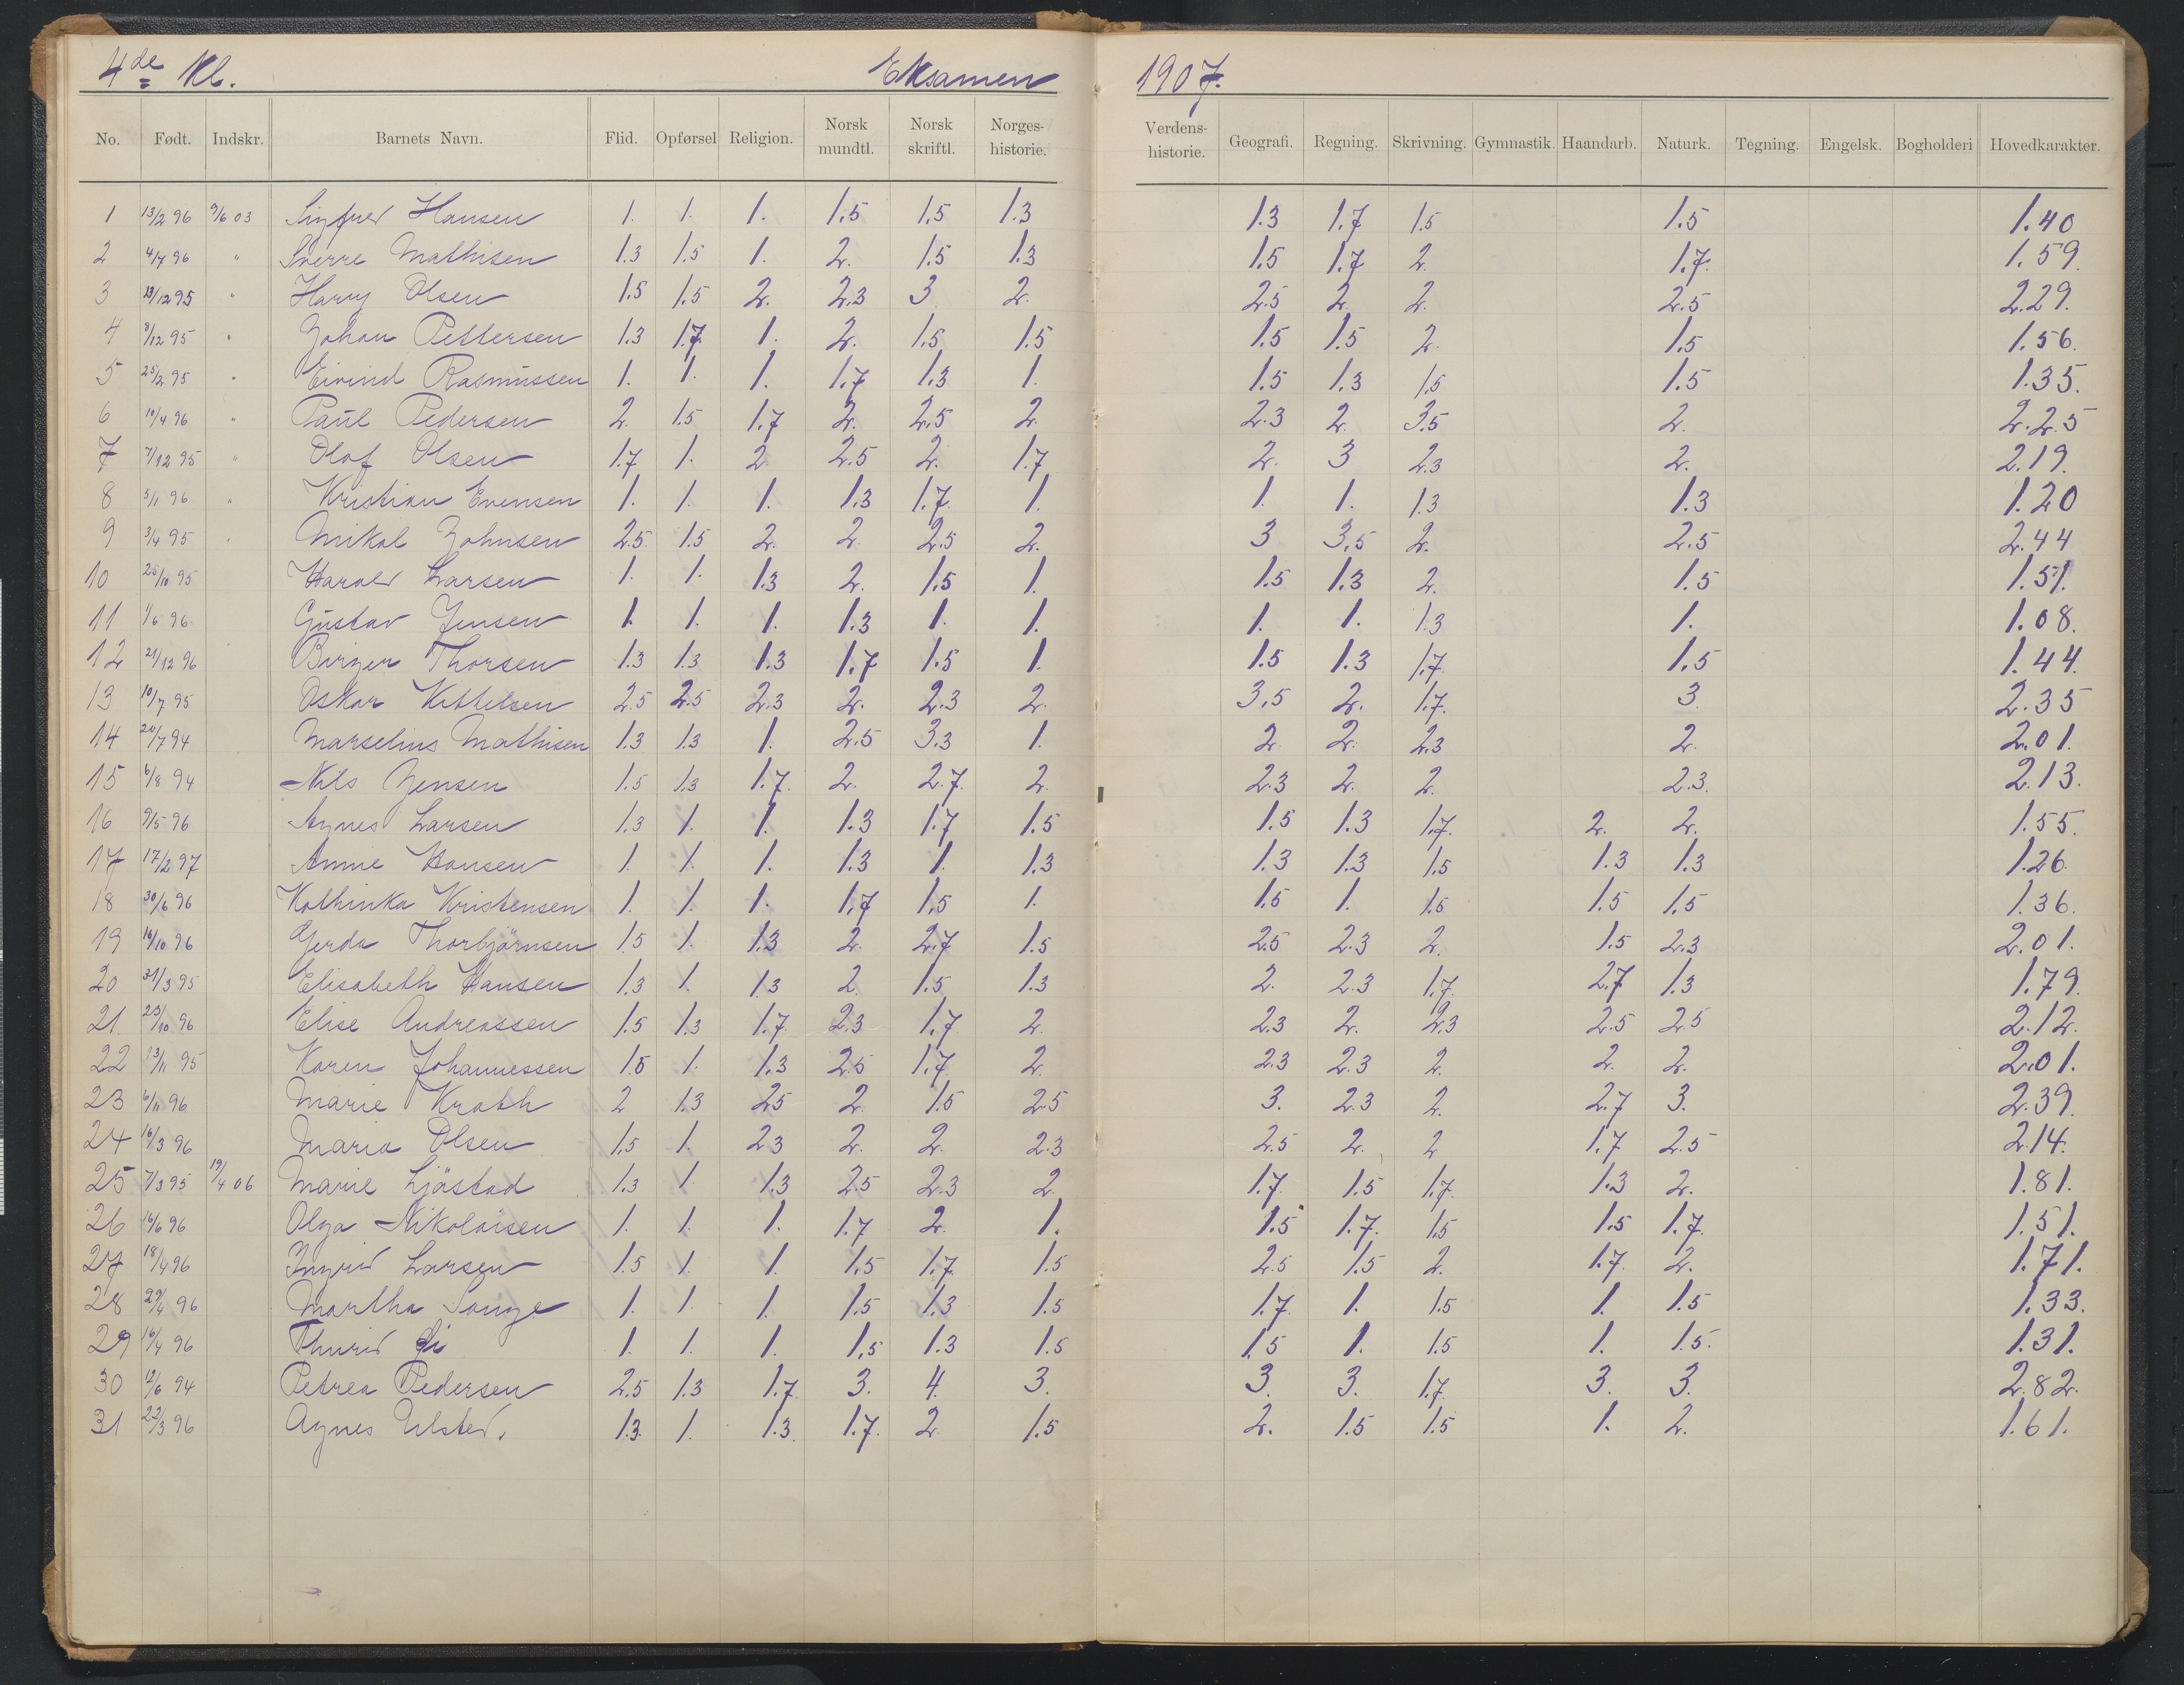 4de Kl. Eksamen 1907.
No. Født. Indskr. Barnets Navn. Flid. Opførsel Religion. Norsk mundtl. Norsk skriftl. Norges-historie. Verdens-historie. Geografi. Regning. Skrivning. Gymnastik. Haandarb. Naturk. Tegning. Engelsk. Bogholderi Hovedkarakter.
1 13/2 96 9/6 03 Sigfred Hansen 1. 1. 1. 1.5 1.5 1.3 1.3 1.7 1.5 1.5 1.40
2 4/7 96 " Sverre Mathisen 1.3 1.5 1. 2. 1.5 1.3 1.5 1.7 2. 1.7. 1.59.
3 /12 95 " Harry Olsen 1.5 1.5 2. 2.3 3 2. 2.5 2. 2. 2.5 2.29.
4 8/12 95 " Johan Pettersen 1.3 1.7. 1. 2. 1.5 1.5 1.5 1.5 2. 1.5 1.56.
5 25/2 95 " Eivind Rasmussen 1. 1. 1. 1.7 1.3 1. 1.5 1.3 1.5 1.5 1.35.
6 10/4 96 " Paul Pedersen 2. 1.5 1.7 2. 2.5 2. 2.3 2. 3.5 2. 2.25
7 7/12 95 " Olaf Olsen 1.7 1. 2 2.5 2. 1.7 2. 3 2.3 2. 2.19.
8 5/1 96 " Kristian Evensen 1. 1. 1. 1.3 1.7. 1. 1. 1. 1.3 1.3 1.20
9 3/4 95 " Mikal Johnsen 2.5 1.5 2. 2. 2.5 2. 3 3.5 2. 2.5 2.44
10 25/10 95 Harald Larsen 1. 1. 1.3 2. 1.5 1. 1.5 1.3 2. 1.5 1.51.
11 1/6 96 Gustav Jensen 1. 1. 1. 1.3 1. 1. 1. 1. 1.3 1. 1.08.
12 21/12 96 Birger Thorsen 1.3 1.3 1.3 1.7 1.5 1. 1.5 1.3 1.7. 1.5 1.44.
13 10/7 95 Oskar Kittelsen 2.5 2.5 2.3 2. 2.3 2. 3.5 2. 1.7. 3. 2.35
14 /7 94 Marselius Mathisen 1.3 1.3 1. 2.5 3.3 1. 2. 2. 2.3 2. 2.01.
15 6/8 94 Nils Jensen 1.5 1.3 1.7. 2. 2.7. 2. 2.3 2. 2. 2.3. 2.13.
16 9/5 96 Agnes Larsen 1.3 1. 1. 1.3 1.7 1.5 1.5 1.3 1.7. 2. 2. 1.55.
17 17/2 97 Annie Hansen 1. 1. 1. 1.3 1. 1.3 1.3 1.3 1.5 1.3 1.3 1.26.
18 30/6 96 Kathinka Kristensen 1. 1. 1. 1.7 1.5 1. 1.5 1. 1.5 1.5 1.5 1.36.
19 16/10 96 Gerda Thorbjörnsen 1.5 1. 1.3 2. 2.7 1.5 2.5 2.3 2. 1.5 2.3 2.01.
20 31/3 95 Elisabeth Hansen 1.3 1. 1.3 2. 1.5 1.3 2. 2.3 1.7. 2.7 1.3 1.79.
21 23/10 96 Elise Andreassen 1.5 1.3 1.7. 2.3 1.7. 2. 2.3 2. 2.3 2.5 2.5 2.12.
22 13/11 95 Karen Johannessen 1.5 1. 1.3 2.5 1.7. 2. 2.3 2.3 2. 2. 2. 2.01.
23 6/11 96 Marie Krabh 2 1.3 2.5 2. 1.5 2.5 3. 2.3 2. 2.7 3. 2.39.
24 16/3 96 Maria Olsen 1.5 1. 2.3 2. 2. 2.3 2.5 2. 2 1.7 2.5 2.14.
25 7/3 95 19/4 06 Marie Ljöstad 1.3 1. 1.3 2.5 2.3 2. 1.7. 1.5 1.7. 1.3 2. 1.81.
26 16/6 96 Olga Nikolaisen 1. 1. 1. 1.7 2. 1. 1.5 1.7. 1.5 1.5 1.7. 1.51.
27 18/4 96 Ingrid Larsen 1.5 1. 1. 1.5 1.7. 1.5 2.5 1.5 2. 1.7. 2. 1.71.
28 29/4 96 Martha Sange 1. 1. 1. 1.5 1.3 1.5 1.7. 1. 1.5 1. 1.5 1.33.
29 16/4 96 Thurid Li 1. 1. 1. 1.5 1.3 1.5 1.5 1. 1.5 1. 1.5. 1.31.
30 12/6 94 Petrea Pedersen 2.5 1.3 1.7 3. 4. 3. 3. 3. 1.7. 3. 3. 2.82.
31 22/3 96 Agnes Ulsted. 1.3. 1. 1.3. 1.7. 2. 1.5 2. 1.5 1.5 1. 2. 1.61.